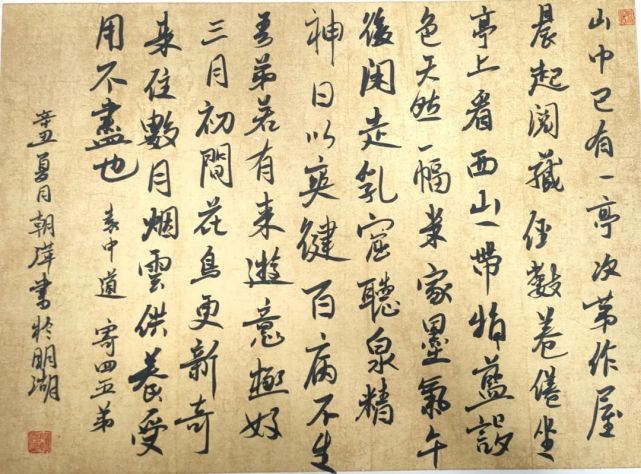 山中已有一亭次第作屋
晨起閱藏經數卷倦坐
亭上看西山一帶堆藍設
色天然一幅米家墨氣午
後閑走乳窟聽泉精
神日以爽健百病不生
吾弟若有来遊意極好
三月初間花鳥更新奇
来住數月烟雲供養受
用不盡也 袁中道 寄四五弟
辛丑夏月朝萍書於明湖